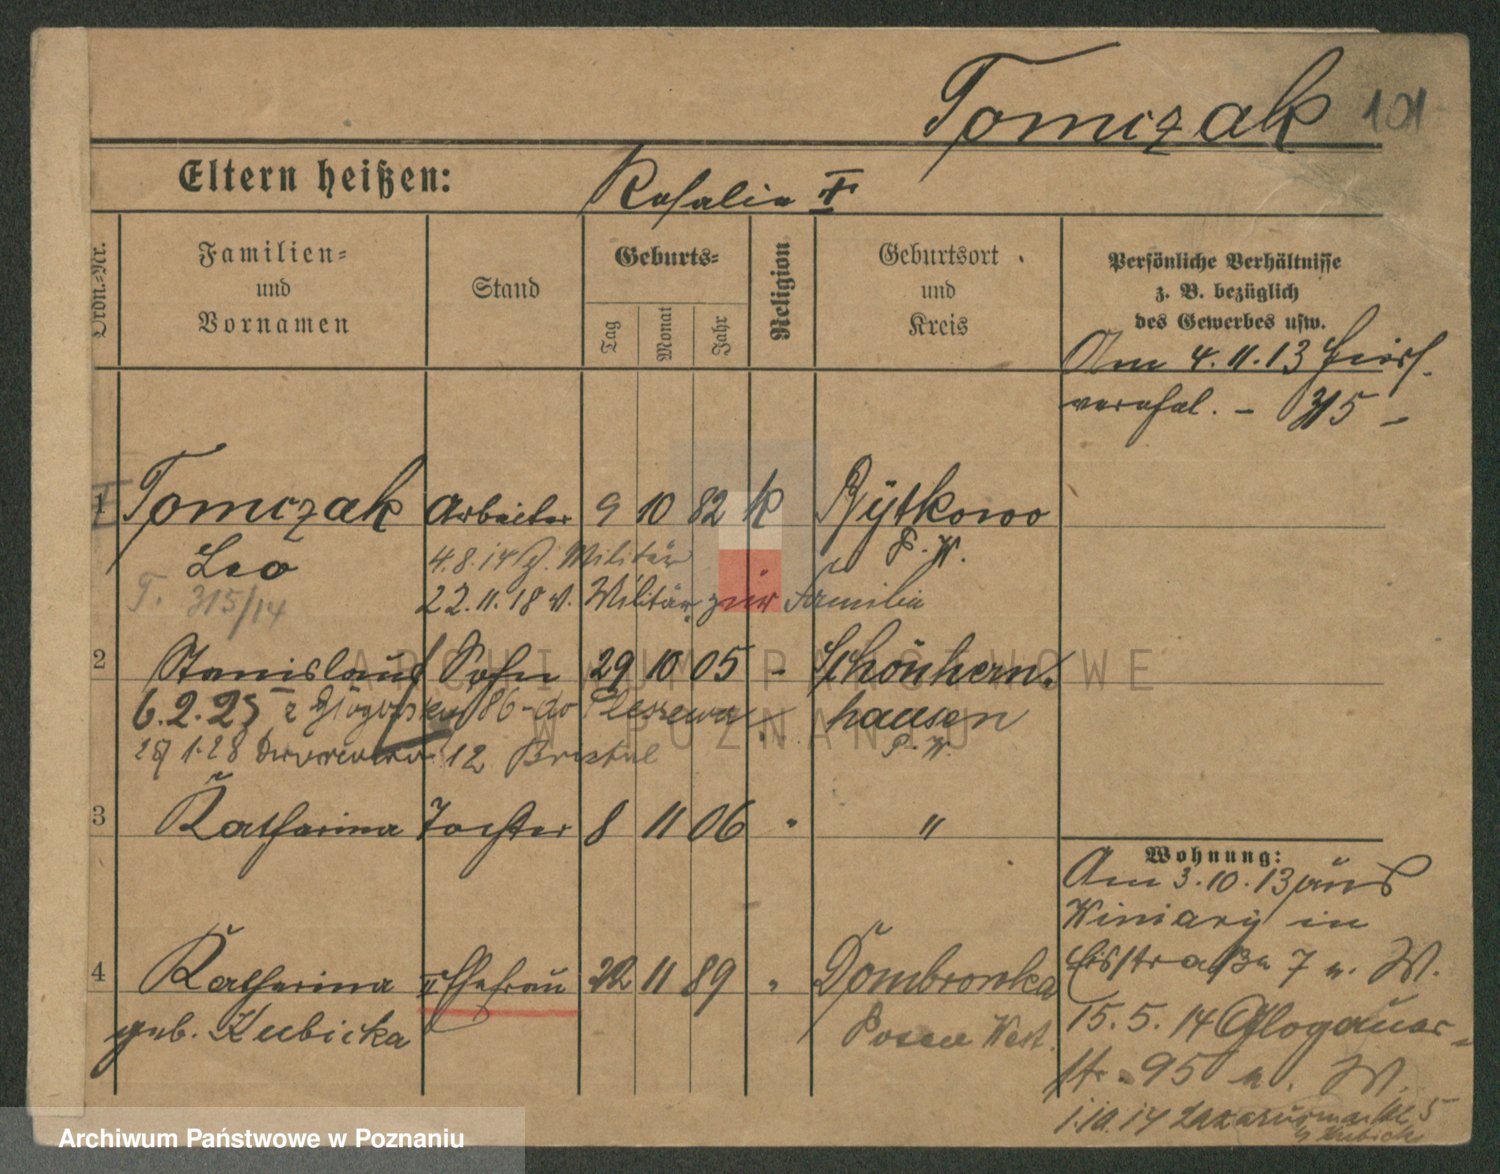 Tomczak 101
Eltern heißen: Rosalia T
Ordn.-Nr.
Familien-
und
Vornamen
Stand
Geburts-
Tag
Monat
Jahr
Religion
Geburtsort
und
Kreis
Persönliche Verhältnisse
z. B. bezüglich
des Gewerbes usw.
Am 4.11.13
315
1 Tomczak Arbeiter 9 10 82 k Rÿtkowo
Leo P. W.
4.8.14 z. Militär
T. 315/14
22.11.18 v. Militär zur Familie
2 Stanislaus Sohn 29 10 05 - Schönhern-
6.2.25 z 86 - do Pleszewa hausen
P. W.
1.28 12
3 Katharina Tochter 8 11 06 " "
4 Katharina II Ehefrau 22 11 89 " Dombrowka
geb. Kubicka Posen West.
Wohnung:
Am 3.10.13 aus
Winiary in
7 n. W.
15.5.14 Glogauer-
str. 95 n. W.
1.10.14 Lazarusmarkt 5
b/ Kubicki
ARCHIWUM PAŃSTWOWE
W POZNANIU
Archiwum Państwowe w Poznaniu